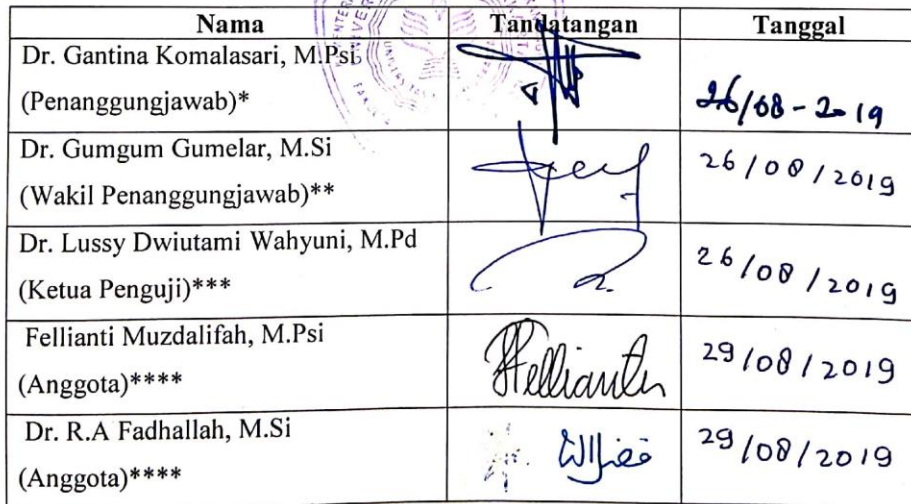 Nama Tandatangan Tanggal
Dr. Gantina Komalasari, M.Psi
(Penanggungjawab)* 26/08-2019
Dr. Gumgum Gumelar, M.Si
(Wakil Penanggungjawab)** 26/08/2019
Dr. Lussy Dwiutami Wahyuni, M.Pd
(Ketua Penguji)*** 26/08/2019
Fellianti Muzdalifah, M.Psi
(Anggota)**** Fellianti 29/08/2019
Dr. R.A Fadhallah, M.Si
(Anggota)**** فضل الله 29/08/2019